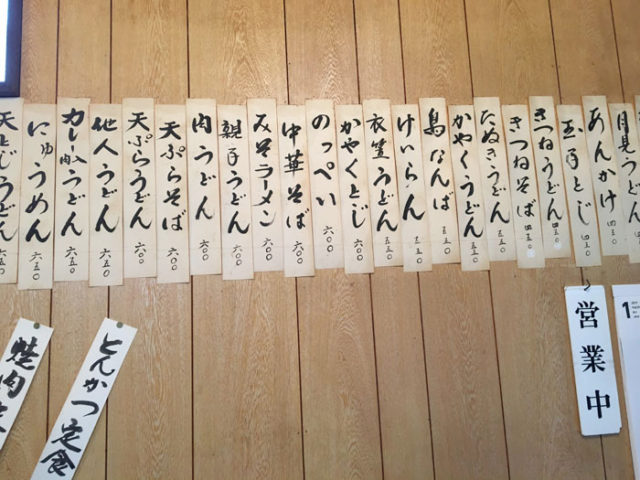 月見うどん
あんかけ 四五〇
玉子とじ 四五〇
きつねうどん 四五〇
きつねそば 四五〇
たぬきうどん 五五〇
かやくうどん 五五〇
鳥なんば 五五〇
けいらん 五五〇
衣笠うどん 六〇〇
かやくとじ 六〇〇
のっぺい 六〇〇
中華そば 六〇〇
みそラーメン 六〇〇
親子うどん 六〇〇
肉うどん 六〇〇
天ぷらそば 六〇〇
天ぷらうどん 六〇〇
他人うどん 六五〇
カレーうどん 六五〇
にゅうめん 六五〇
天とじうどん 六五〇
営業中
とんかつ定食
焼肉定